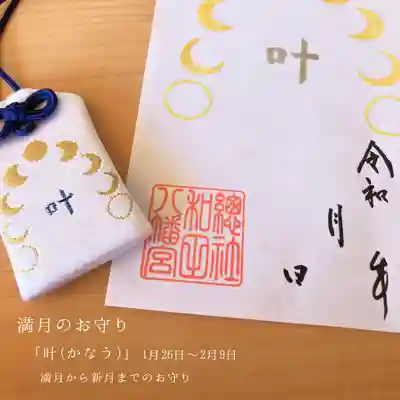 叶
叶
令和 年
月
日
總社
和田
八幡宮
満月のお守り
「叶(かなう)」 1月26日～2月9日
満月から新月までのお守り